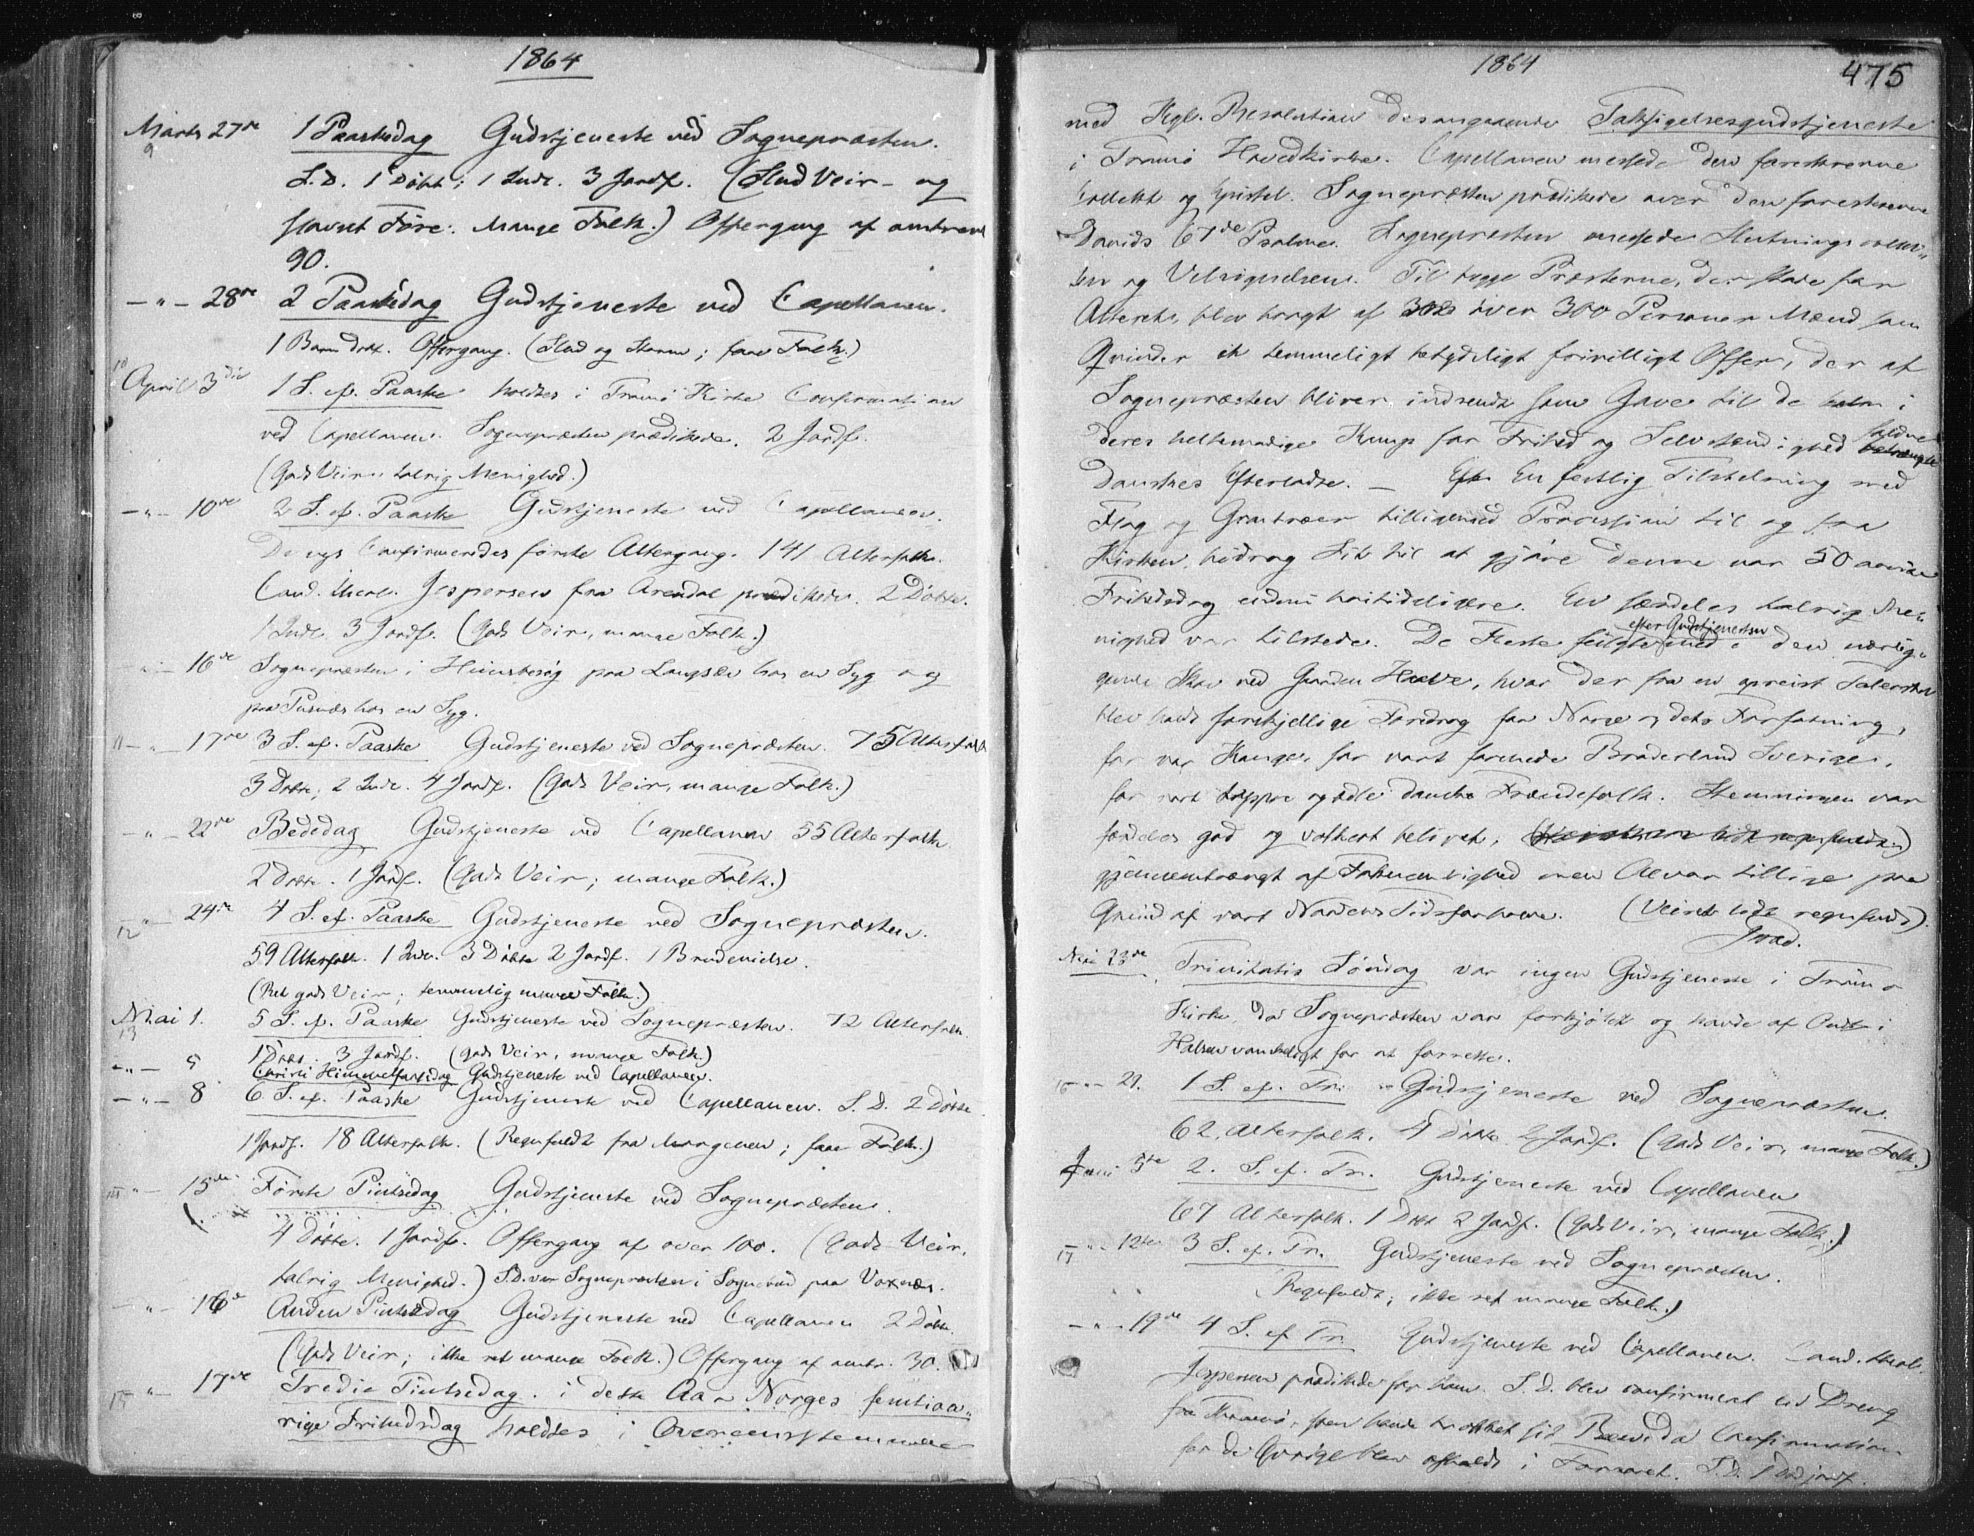 1864
Marts 27de 1 Paaskedag Gudstjeneste ved Sognepræsten.
9
S.D. 1 Døbt; 1 Indl. 3 Jordf. (Slud Veir - og
Føre: mange Folk.) Offergang af omtrent
90.
— " — 28de 2 Paaskedag Gudstjeneste ved Capellanen.
1 Barn Offergang. (Slud og Storm; faae Folk.)
10
April 3die 1 S. ef. Paaske holdtes i Tromø Kirke Confirmation
ved Capellanen. Sognepræsten prædikede. 2 Jordf.
(Godt Veir: talrig Menighed.)
— " — 10de 2 S. ef. Paaske Gudstjeneste ved Capellanen.
De nys Confirmeredes første Altergang. 141 Alterfolk.
Cand. theol. Jespersen fra Arendal prædikede. 2 Døbte.
1 Indl. 3 Jordf. (Godt Veir, mange Folk.)
— " — 16de Sognepræsten i Huusbesøg paa Langsæ hos en Syg og
paa Pusnæs hos en Syg.
11 — " — 17de 3 S. ef. Paaske Gudstjeneste ved Sognepræsten. 75 Alterfolk
3 Døbte, 2 Indl. 4 Jordf. (Godt Veir, mange Folk.)
— " — 22de Bededag Gudstjeneste ved Capellanen 55 Alterfolk
2 Døbte. 1 Jordf. (Godt Veir; mange Folk.)
12 " — 24de 4 S. ef. Paaske Gudstjeneste ved Sognepræsten.
59 Alterfolk. 1 Indl. 3 Døbte 2 Jordf. 1 Brudevielse.
(Ret godt Veir; temmelig mange Folk.)
Mai 1. 5 S. ef. Paaske Gudstjeneste ved Sognepræsten. 72 Alterfolk
13
1 Døbt. 3 Jordf. (Godt Veir, mange Folk.)
— " — 5 Christi Himmelfartsdag Gudstjeneste ved Capellanen.
— " — 8 6 S. ef. Paaske Gudstjeneste ved Capellanen. S.D. 2 Døbte
1 Jordf. 18 Alterfolk. (Regnfuldt fra Morgenen; faae Folk.)
14 " — 15de Første Pintsedag Gudstjeneste ved Sognepræsten.
4 Døbte. 1 Jordf. Offergang af over 100. (Godt Veir,
talrig Menighed.) S.D. var Sognepræsten i Sognebud paa Voxnæs.
— " — 16de Anden Pintsedag Gudstjeneste ved Capellanen 2 Døbte.
(Godt Veir; ikke ret mange Folk.) Offergang af omtr. 30.
15 " — 17de Tredie Pintsedag. i dette Aar Norges femtiaa-
rige Frihedsdag holdtes i Overeensstemmelse
1864 475
med Kgl. Resolution desangaaende Taksigelsesgudstjeneste
i Tromø Hovedkirke. Capellanen messede den foreskrevne
Collekt og Epistel. Sognepræsten prædikede over den foreskrevne
Davids 67de Psalme. Sognepræsten messede Slutningscollek-
ten og Velsignelsen. Til begge Præsterne, der stode for
Alteret, blev bragt af over 300 Personer Mænd som
Qvinder et temmeligt betydeligt frivilligt Offer, der af
Sognepræsten bliver indsendt som Gave til de i
deres heltemodige Kamp for Frihed og Selvstændighed faldne
Danskes Efterladte. — En festlig Tilstelning med
Flag og Grantræer tilligemed Procession til og fra
Kirken, bidrog Sit til at gjøre denne vor 50 aarige
Frihedsdag endnu høitideligere. En særdeles talrig Me-
nighed var tilstede. De Fleste fulgte efter Gudstjenesten med i den nærlig-
gende Skov ved Gaarden Hove, hvor der fra en opreist Talerstol
blev holdt forskjellige Foredrag for Norge og dets Forfatning,
for vor Konge, for vort forenede Broderland Sverige,
for vort tappre og ædle danske Frændefolk. Stemningen var
særdeles god og vakkert belivet,
gjennemtrængt af Taknemlighed men Alvor tillige paa
Grund af vort Nordens Tidsforhold. (Veiret lidt regnfuldt).
Mai 22de Trinitatis Søndag var ingen Gudstjeneste i Tromø
Kirke, da Sognepræsten var forkjølet og havde af Ondt i
Halsen vanskeligt for at forrette.
16 — " — 29. 1 S. ef. Tr: Gudstjeneste ved Sognepræsten.
62 Alterfolk. 4 Døbte 2 Jordf. (Godt Veir, mange Folk.)
Juni 5te 2. S. ef. Tr. Gudstjeneste ved Capellanen
67 Alterfolk. 1 Døbt 2 Jordf. (Godt Veir, mange Folk.)
17 " — 12te 3 S. ef. Tr. Gudstjeneste ved Sognepræsten.
(Regnfuldt; ikke ret mange Folk.)
— " — 19de 4 S. ef Tr. Gudstjeneste ved Capellanen. Cand. theol.
Jespersen prædikede for ham. S.D. blev confirmeret en Dreng
fra Tromø, som havde brækket sit Been da Confirmationen
for de Øvrige blev afholdt i Foraaret. S.D. 1 Jordf.